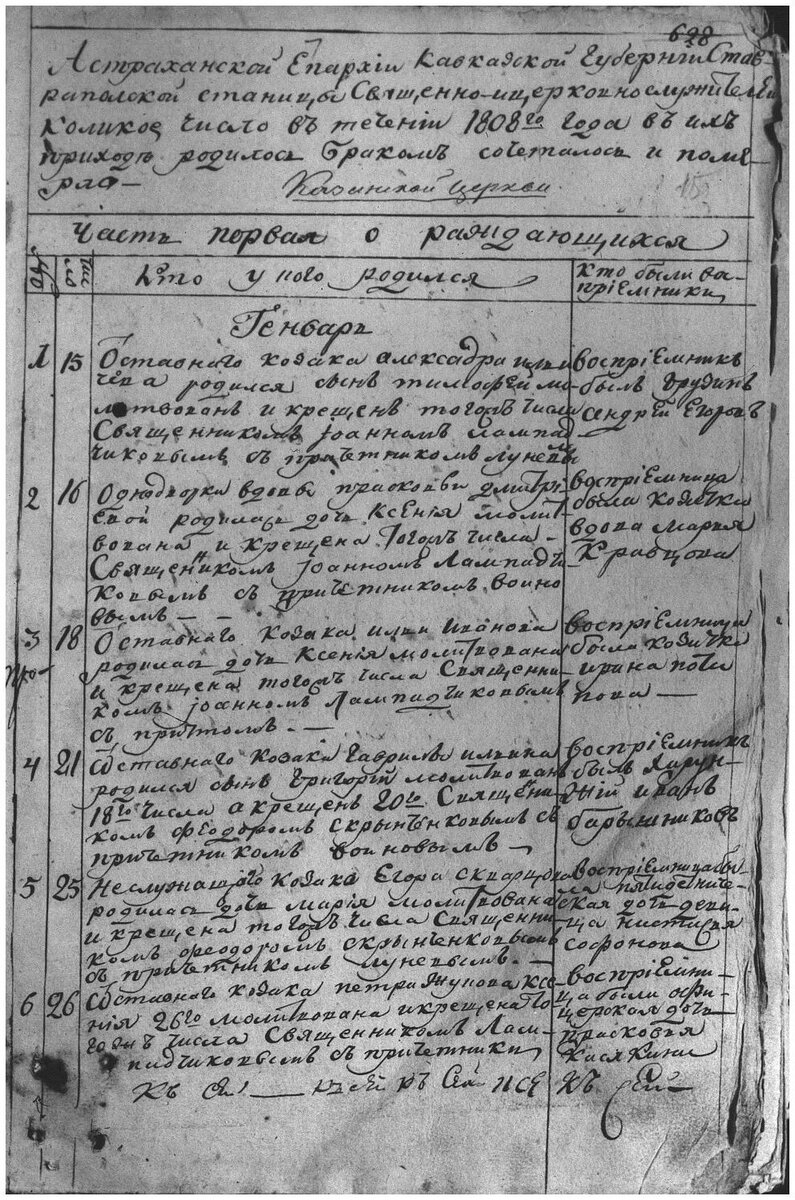 698
Астраханской Епархіи Кавкаской Губерніи Став-
рапольской станицы Священно-ицерковнослужителей
коликое число въ теченіи 1808го года въ ихъ
приходе родилось бракомъ сочеталось и поме-
рло-
Казанской церкви
Часть первая о раждающихся
Число
Кто у кого родился
кто были во-
пріемники
Генварь
1 15
Оставнаго козака александра
родился сынъ тимофей мо-
литвованъ и крещенъ тогожъ числа
Священникомъ Іоанномъ Лампад-
чиковымъ съ причетникомъ луневы
воспріемникъ
былъ грузинъ
Егоровъ
2 16
Однодворки вдовы прасковьи дмитрі-
евой родилась дочь Ксенія молит-
вована и крещена тогожъ числа-
Священникомъ Іоанномъ Лампадчи
ковымъ съ причетникомъ воино
вымъ - -
воспріемница
была козачка
вдова марья
Кравцова
3 18
Оставнаго козака ильи иванова
родилась дочь Ксенія молитвована
и крещена тогожъ числа Священни-
комъ Іоанномъ Лампадчиковымъ
съ притчомъ. -
воспріемница
была козачка
ирина
пова -
4 21
Оставнаго козака гаврилы ильина
родился сынъ григорій молитвованъ
18го числа а крещенъ 20го Священи
комъ феодоромъ скрынченковымъ съ
причетникомъ воиновымъ -
воспріемникъ
былъ Хорун-
жій иванъ
барышниковъ
5 25
Неслужащаго козака Егора скварцова
родилась дочь марія молитвована
и крещена тогожъ числа Священни-
комъ феодоромъ скрынченковымъ
съ причетникомъ луневымъ. -
воспріемница бы-
ла
ская дочь деви-
ца настасья
софонова
6 26
Оставнаго козака петра жукова ксе-
нія 26го молитвована и крещена то
гожъ числа Священникомъ Лам-
падчиковымъ съ причетники
воспріемни-
ца была офи-
церская дочь
прасковья
Касякина